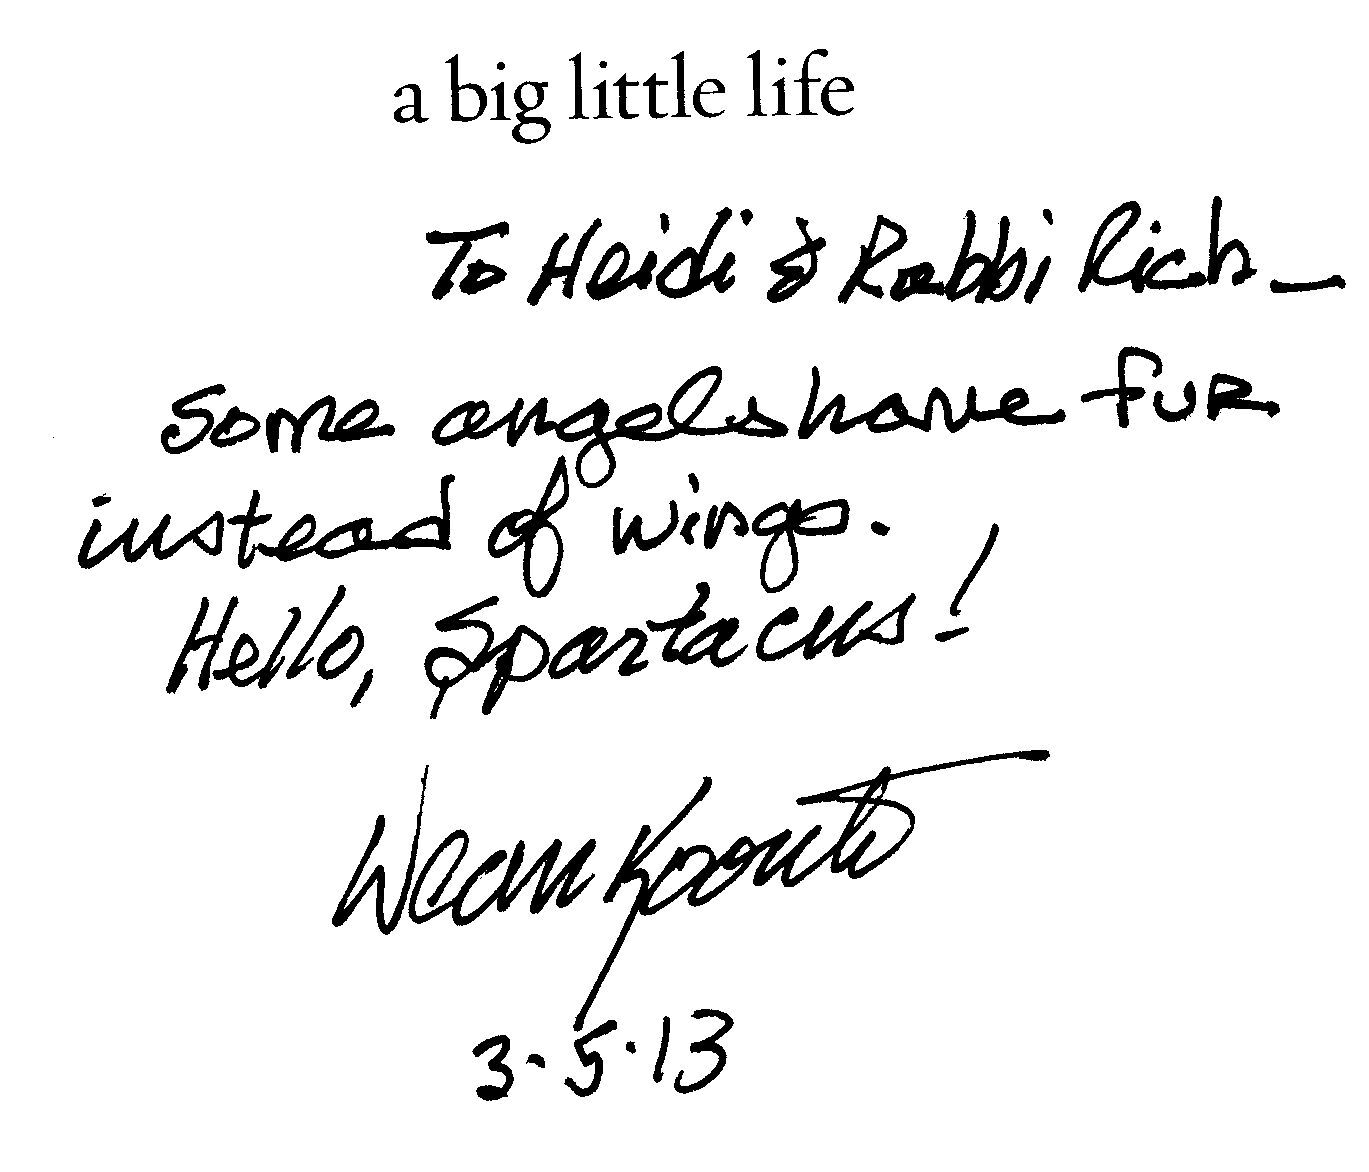 a big little life
To Heidi & Rabbi Rich—
Some angels have fur
instead of wings.
Hello, Spartacus!
Dean Koontz
3·5·13